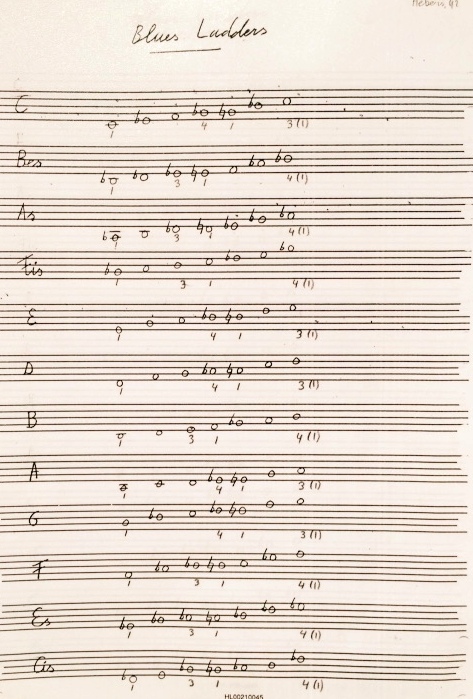 Blues Ladders
C
1 4 1 3 (1)
Bes
1 3 1 4 (1)
As
1 3 1 4 (1)
Fis
1 3 1 4 (1)
E
1 4 1 3 (1)
D
1 4 1 3 (1)
B
1 3 1 4 (1)
A
1 4 1 3 (1)
G
1 4 1 3 (1)
F
1 3 1 4 (1)
Es
1 3 1 4 (1)
Cis
1 3 1 4 (1)
HL00210045